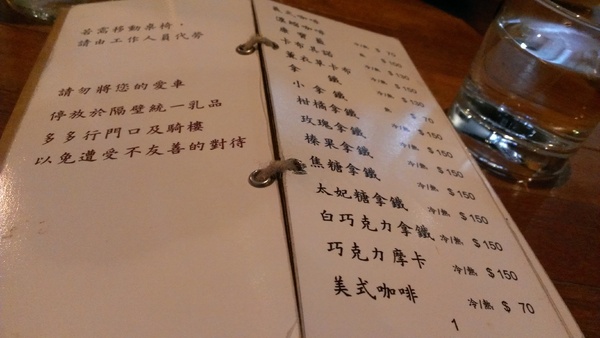 若需移動桌椅，
請由工作人員代勞
請勿將您的愛車
停放於隔壁統一乳品
多多行門口及騎樓
以免遭受不友善的對待
濃縮咖啡
康寶藍
卡布其諾
薰衣草卡布
拿鐵 冷/熱 $130
小拿鐵 $ 70
柑橘拿鐵 冷/熱 $150
玫瑰拿鐵 冷/熱 $150
榛果拿鐵 冷/熱 $150
焦糖拿鐵 冷/熱 $150
太妃糖拿鐵 冷/熱 $150
白巧克力拿鐵 冷/熱 $150
巧克力摩卡 冷/熱 $150
美式咖啡 冷/熱 $ 70
1